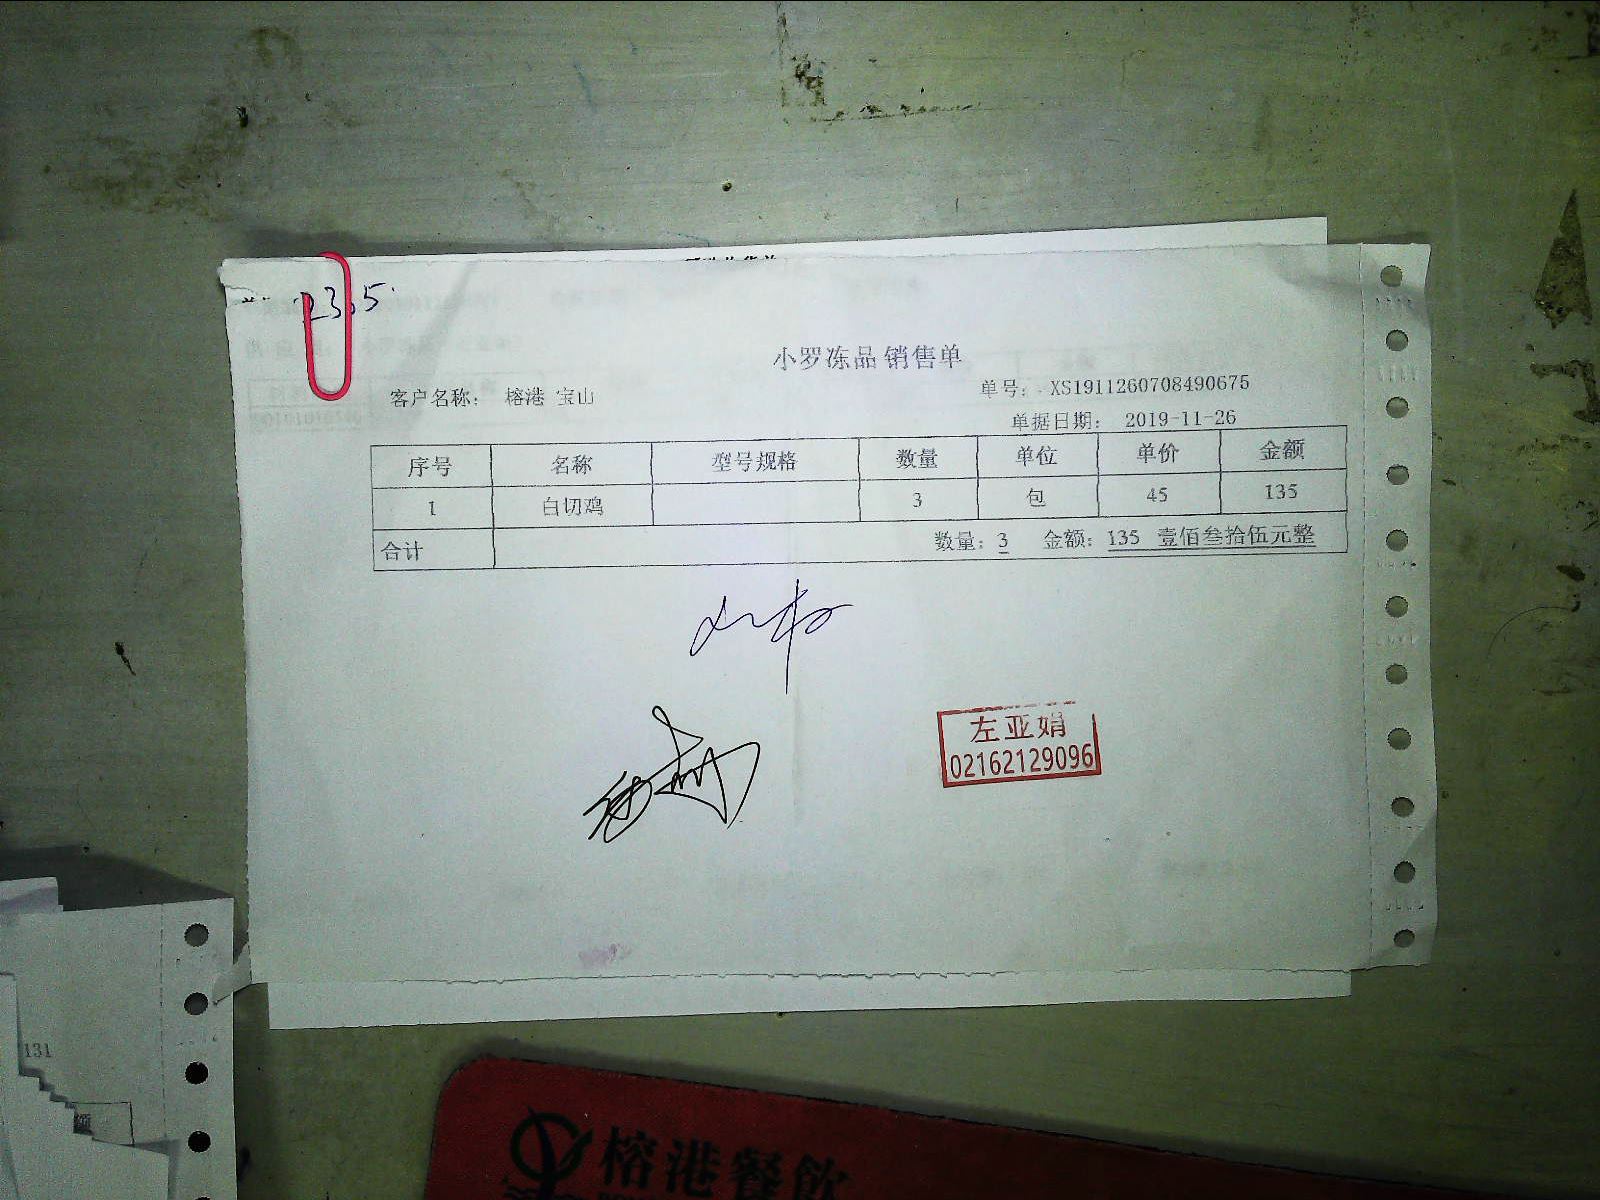 23.5
小罗冻品 销售单
客户名称： 榕港 宝山
单号： XS1911260708490675
单据日期： 2019-11-26
序号 名称 型号规格 数量 单位 单价 金额
1 白切鸡 3 包 45 135
合计 数量：3 金额：135 壹佰叁拾伍元整
左亚娟
02162129096
131
额
榕港餐飲